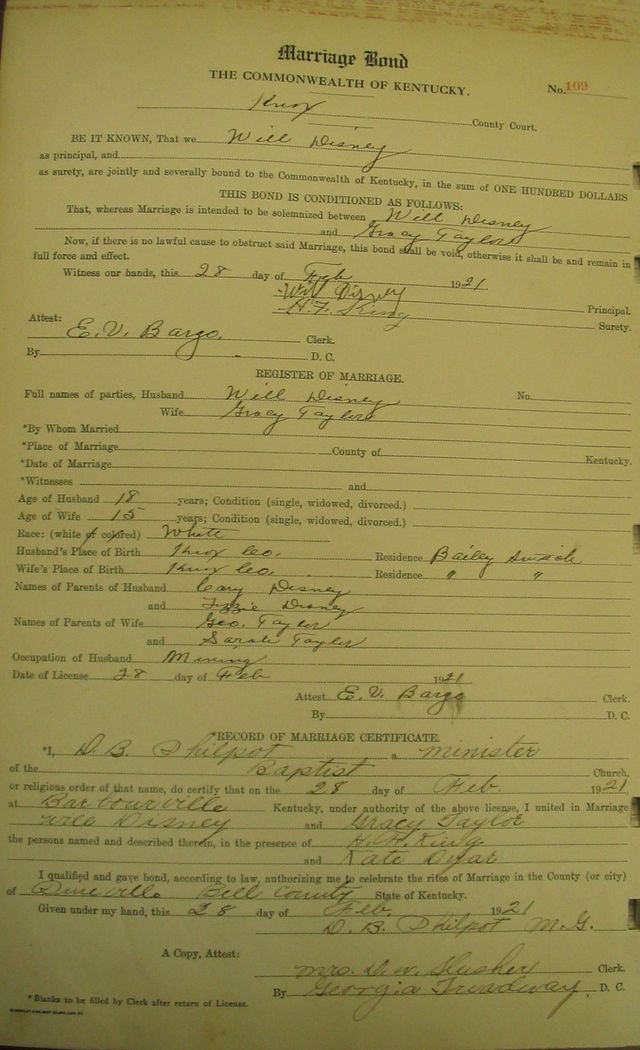 Marriage Bond
THE COMMONWEALTH OF KENTUCKY.
No. 109
Knox County Court.
BE IT KNOWN, That we Will Disney
as principal, and
as surety, are jointly and severally bound to the Commonwealth of Kentucky, in the sum of ONE HUNDRED DOLLARS
THIS BOND IS CONDITIONED AS FOLLOWS:
That, whereas Marriage is intended to be solemnized between Will Disney
and Gracy Taylor
Now, if there is no lawful cause to obstruct said Marriage, this bond shall be void, otherwise it shall be and remain in
full force and effect.
Witness our hands, this 28 day of Feb 1921
Will Disney Principal.
H.F. King Surety.
Attest:
E. V. Bargo. Clerk.
By D. C.
REGISTER OF MARRIAGE.
Full names of parties, Husband Will Disney No.
Wife Gracy Taylor
*By Whom Married
*Place of Marriage County of Kentucky.
*Date of Marriage
*Witnesses and
Age of Husband 18 years; Condition (single, widowed, divorced.)
Age of Wife 15 years; Condition (single, widowed, divorced.)
Race: (white or colored) White
Husband's Place of Birth Knox Co. Residence Bailey Switch
Wife's Place of Birth Knox Co. Residence " "
Names of Parents of Husband Cary Disney
and Disney
Names of Parents of Wife Geo. Taylor
and Sarah Taylor
Occupation of Husband Mining
Date of License 28 day of Feb 1921
Attest E. V. Bargo Clerk.
By D. C.
RECORD OF MARRIAGE CERTIFICATE.
*I, D. B. Philpot a minister
of the Baptist Church,
or religious order of that name, do certify that on the 28 day of Feb. 1921
at Barbourville Kentucky, under authority of the above license, I united in Marriage
Will Disney and Gracy Taylor
the persons named and described therein, in the presence of H. H. King
and Kate
I qualified and gave bond, according to law, authorizing me to celebrate the rites of Marriage in the County (or city)
of Pineville Bell County State of Kentucky.
Given under my hand, this 28 day of Feb. 1921
D. B. Philpot M. G.
A Copy, Attest:
Mrs. D. W. Slusher Clerk.
By Georgia Treadway, D. C.
*Blanks to be filled by Clerk after return of License.